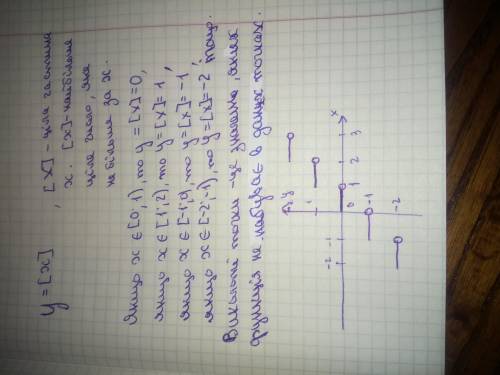 y = [x] , [x] - ціла частина
x. [x] - найбільше
ціле число, яке
не більше за x.
Якщо x ∈ [0; 1), то y = [x] = 0,
якщо x ∈ [1; 2), то y = [x] = 1,
якщо x ∈ [-1; 0), то y = [x] = -1,
якщо x ∈ [-2; -1), то y = [x] = -2, тощо.
Виколоті точки - це значення, яких
функція не набуває в даних точках.
y
1
-2 -1 0 1 2 3 x
-1
-2